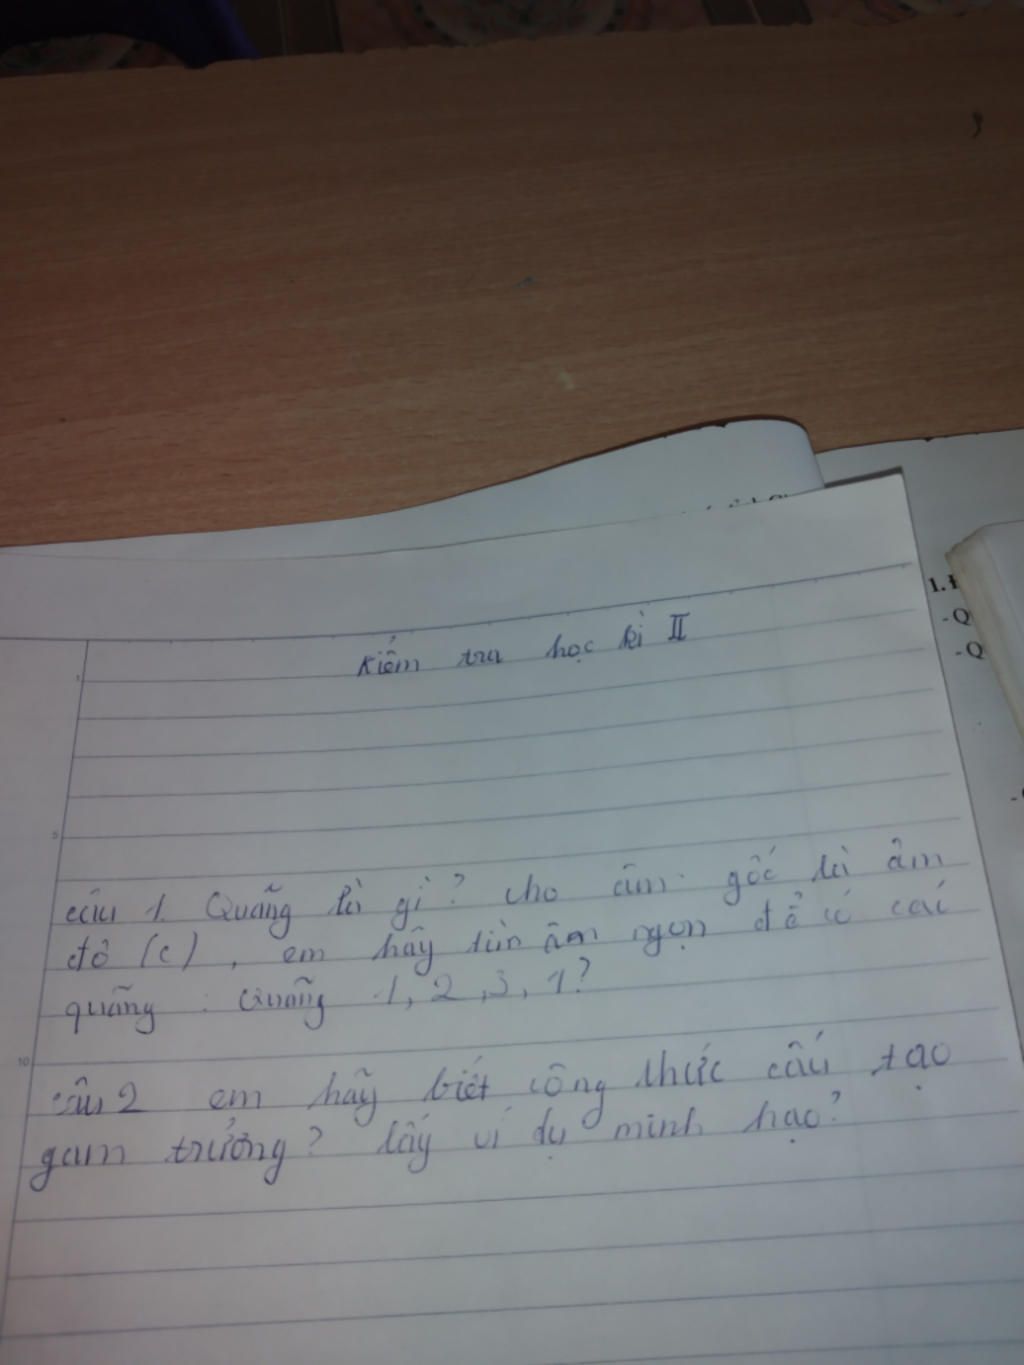 Kiểm tra học kì II
câu 1. Quãng là gì? cho âm gốc là âm
đô (c), em hãy tìm âm ngọn để có các
quãng: Quãng 1, 2, 3, 1?
câu 2 em hãy biết công thức cấu tạo
gam trưởng? lấy ví dụ minh hạo?
1. 
- Q
- Q